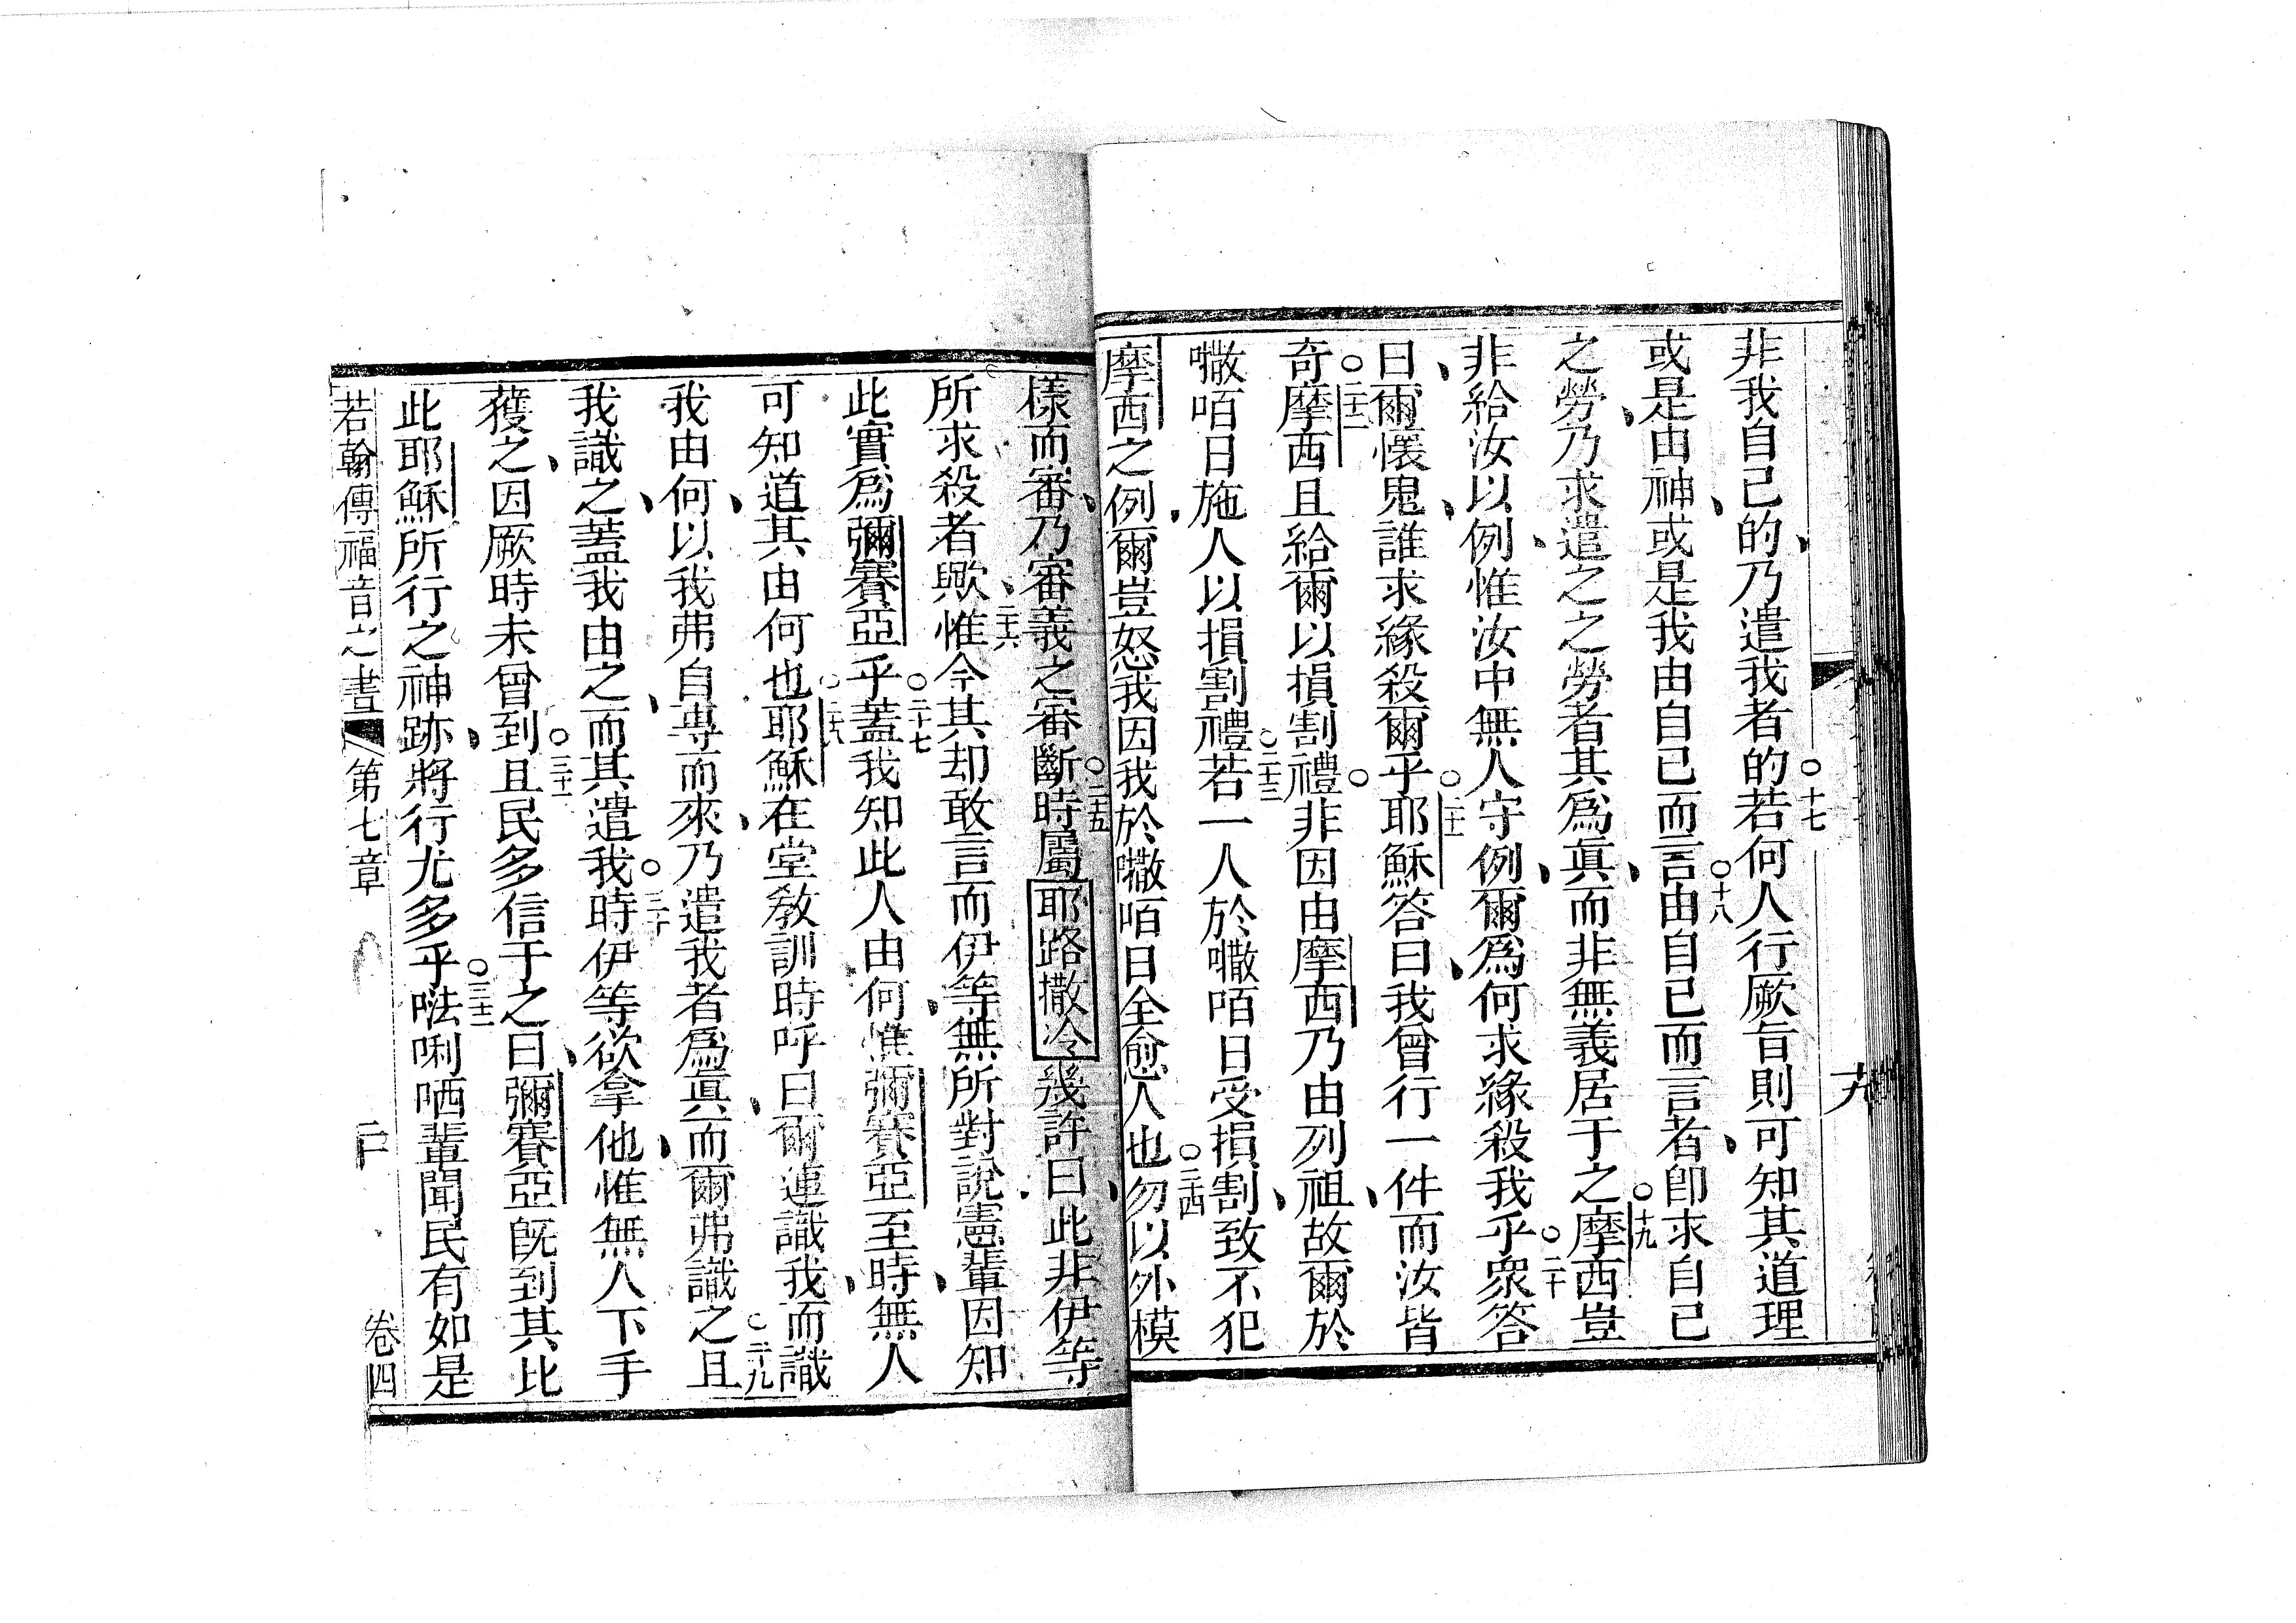 非我自己的、乃遣我者的○十七若何人行厥旨則可知其道理
或是由神、或是我由自己而言○十八由自己而言者、卽求自己
之勞、乃求遣之之勞者其爲眞、而非無義居于之○十九摩西豈
非給汝以例、惟汝中無人守例、爾爲何求緣殺我乎○二十衆答
曰、爾懷鬼、誰求緣殺爾乎○二十一耶穌答曰、我曾行一件而汝皆
奇○二十二摩西且給爾以損割禮○非因由摩西乃由列祖、故爾於
𠾖咟日施人以損割禮○二十三若一人於𠾖咟日受損割、致不犯
摩西之例、爾豈怒我因我於𠾖咟日全愈人也○二十四勿以外模
樣而審、乃審義之審斷○二十五時屬耶路撒冷幾許曰、此非伊等
所求殺者歟、二十六惟今其却敢言而伊等無所對說、憲輩因知
此實爲彌賽亞乎○二十七蓋我知此人由何、惟彌賽亞至時、無人
可知道其由何也○二十八耶穌在堂敎訓時呼曰爾連識我、而識
我由何、以我弗自專而來、乃遣我者爲眞、而爾弗識之○二十九且
我識之、蓋我由之、而其遣我○三十時伊等欲拿他、惟無人下手
獲之、因厥時未曾到○三十一且民多信于之曰、彌賽亞旣到其比
此耶穌所行之神跡、將行尤多乎○三十二㗁唎哂輩聞民有如是
若翰傳福音之書 第七章 二十 卷四